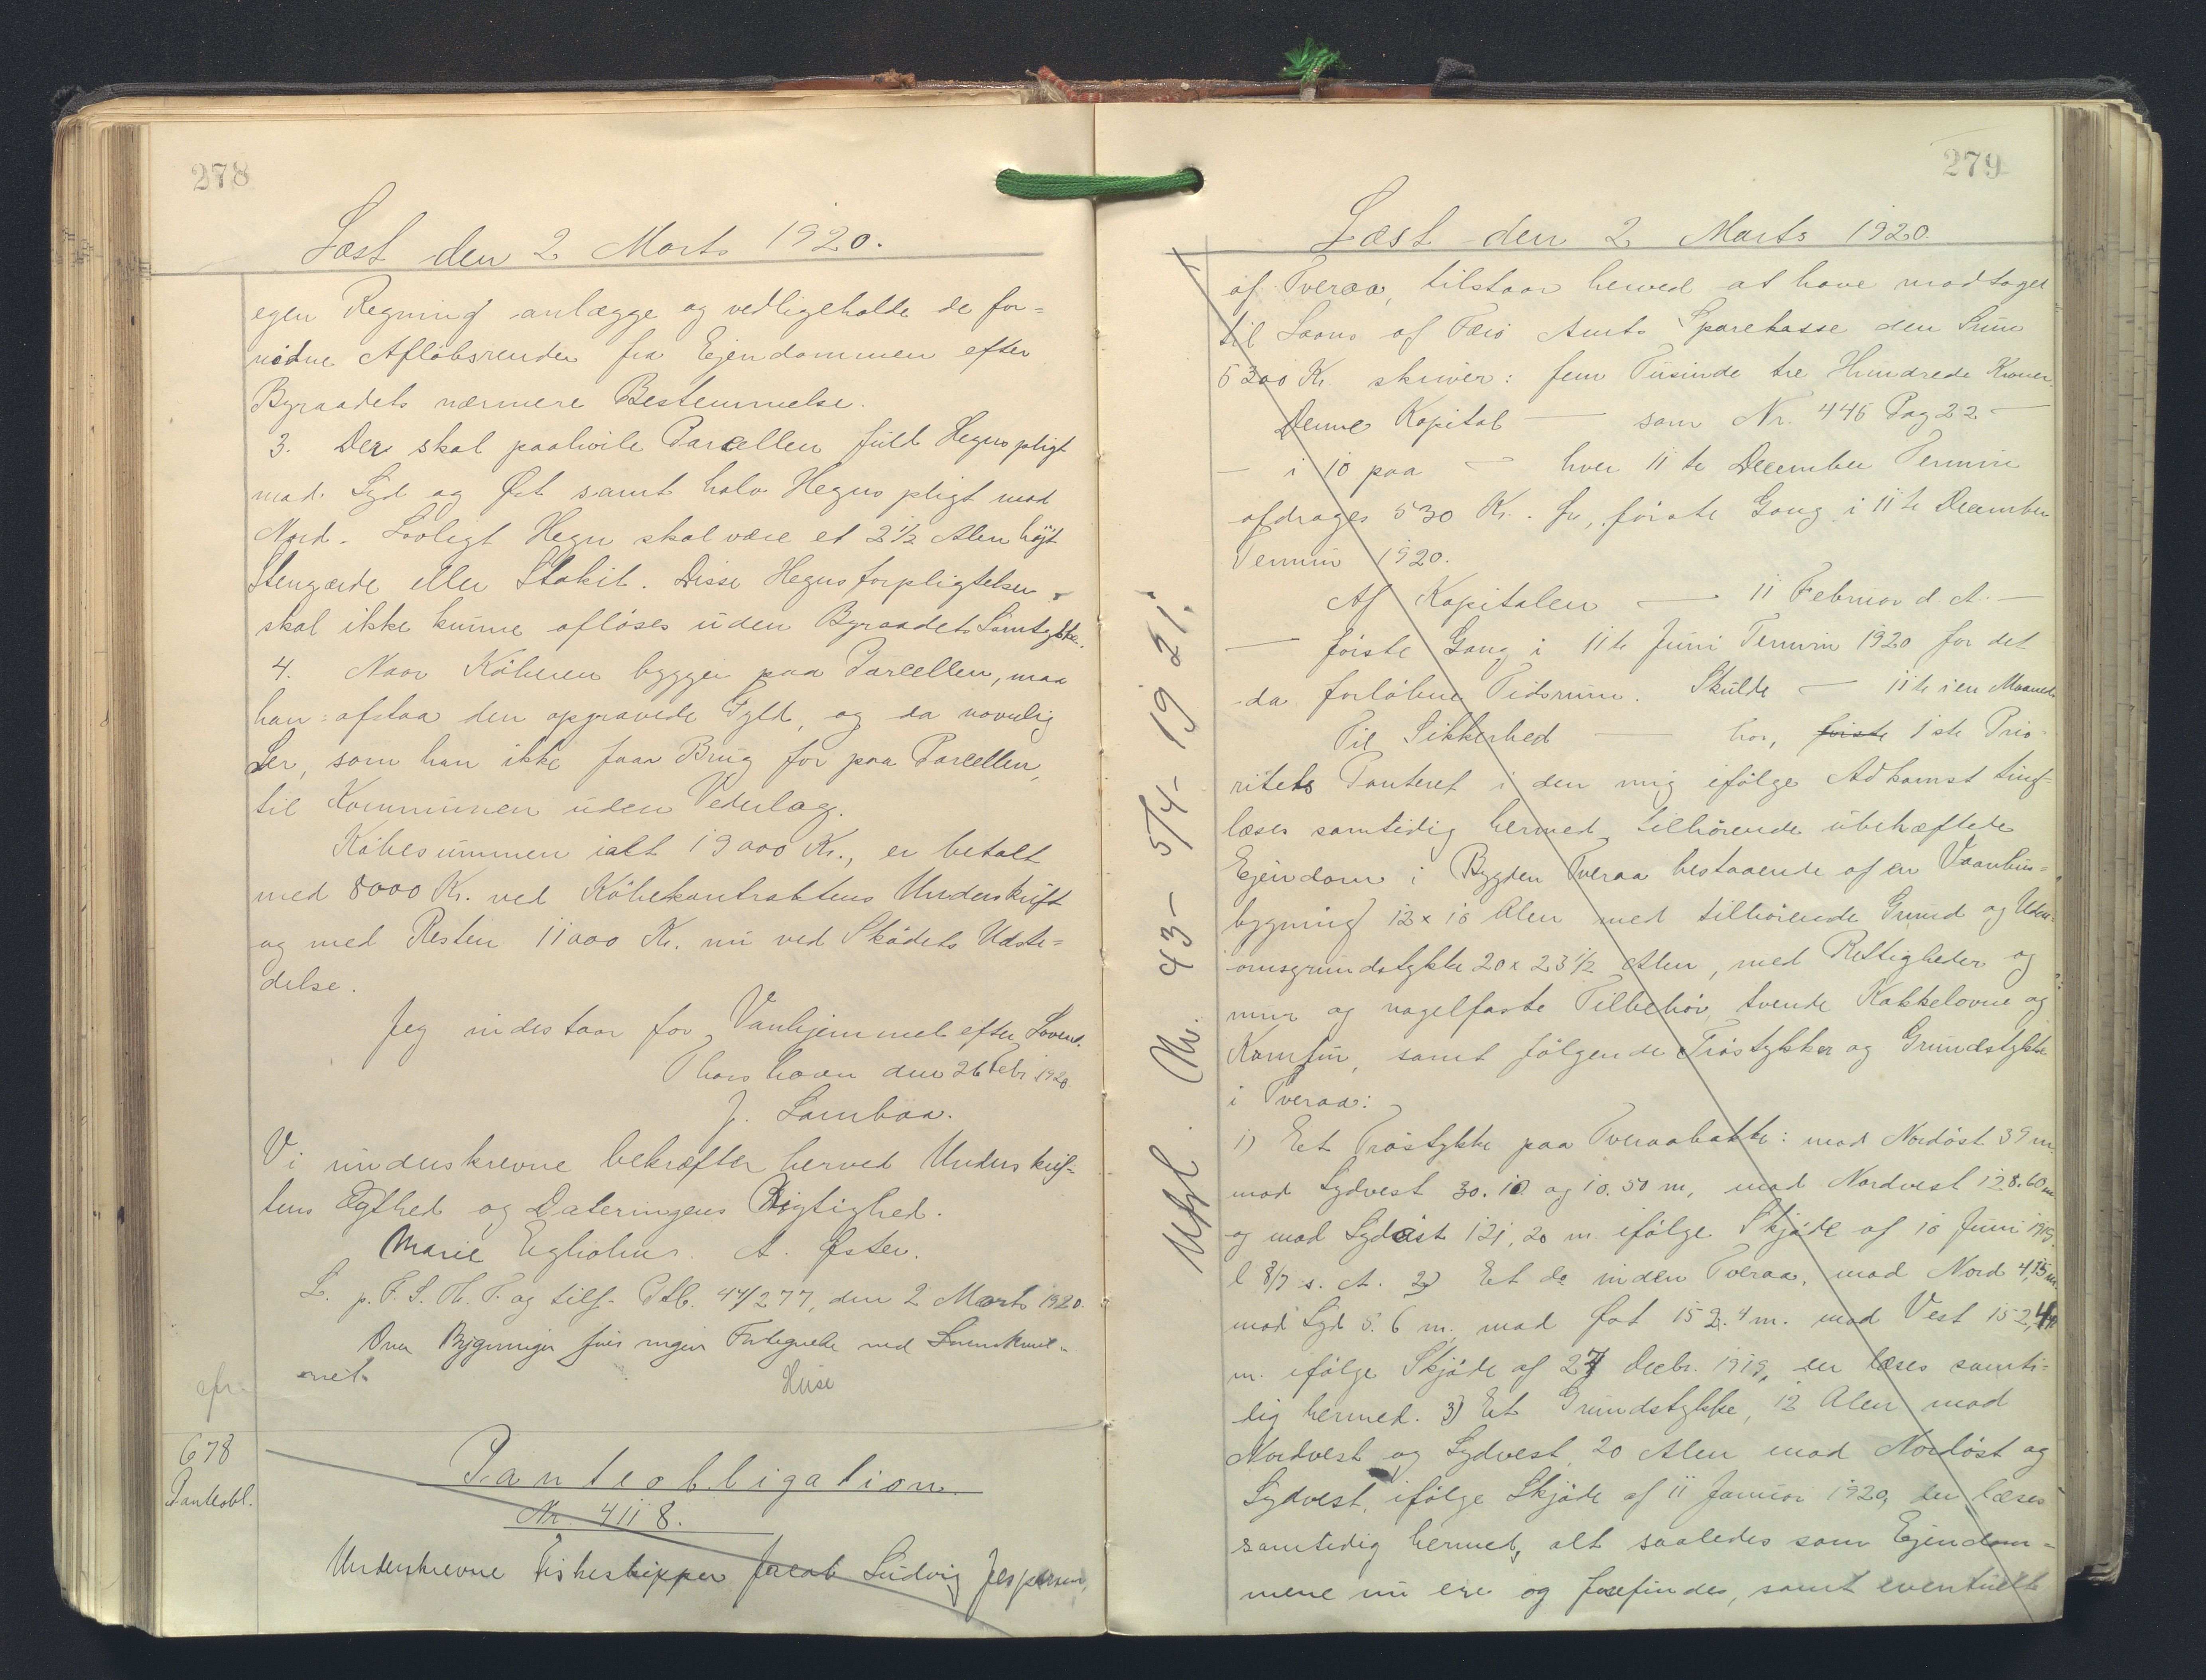 278
Læst den 2 Marts 1920.
egen Regning anlægge og vedligeholde de for=
nødne Afløbsrender fra Ejendommen efter
Byraadets nærmere Bestemmelse.
3. Der skal paahvile Parcellen fuld Hegnspligt
mod Syd og Øst samt halv Hegnspligt mod
Nord. Lovligt Hegn skal være et 2 1/2 Alen højt
Stengærde eller Stakit. Disse Hegnsforpligtelser
skal ikke kunne afløses uden Byraadets Samtykke.
4. Naar Køberen bygger paa Parcellen, maa
han afstaa den opgravede Fyld, og da navnlig
Ler, som han ikke faar Brug for paa Parcellen,
til Kommunen uden Vederlag.
Købesummen ialt 19000 Kr., er betalt
med 8000 Kr. ved Købekontraktens Underskrift
og med Resten 11000 Kr. nu ved Skødets Udste=
delse.
Jeg indestaar for Vanhjemmel efter Loven.
Thorshavn den 26 Febr 1920.
J. Lamhaa.
Vi underskrevne bekræfter herved Underskrif=
tens Ægthed og Dateringens Rigtighed.
Marie Egholm. A. Østen.
L. p. F. S. Th. T. og tilf. Ptb. 44/277, den 2 Marts 1920.
Over Bygninger fin's ingen Forbegnelse ved
net.
Huse
678
Panteobl.
Panteobligation.
Nr. 4118.
Underskrevne Fiskeskipper Jacob Ludvig Jespersen,
279
Læst den 2 Marts 1920.
af Tveraa, tilstaar herved at have modtaget
til Laans af Færø Amts Sparekasse den Sum
5300 Kr. skriver: fem Tusinde tre Hundrede Kroner.
Denne Kapital — som Nr. 446 Pag 22 —
— i 10 paa — hver 11te December Termin
afdrages 530 Kr. fr, første Gang i 11te December
Termin 1920.
Af Kapitalen — 11 Februar d A. —
— første Gang i 11te Juni Termin 1920 for det
da forløbne Tidsrum. Skulde — 11te i en Maaned
Til Sikkerhed — hos, første 1ste Prio-
ritets Panteret i den mig ifølge Adkomst ting=
læses samtidig hermed tilhørende ubehæftede
Ejendom i Bygden Tveraa bestaaende af en Vaanhus=
bygning 12 x 10 Alen med tilhørende Grund og Uden=
omsgrundstykke 20 x 23 1/2 Alen, med Rettigheder og
mur og nagelfaste Tilbehør, tvende Kakkelovne og
Komfur, samt følgende Trøstykker og Grundstykke
i Tveraa:
1) Et Trøstykke paa Tveraabakke: mod Nordøst 39 m.
mod Sydvest 30.10 og 10.50 m, mod Nordvest 128.60 m
og mod Sydøst 121,20 m. ifølge Skjøde af 10 Juni 1919
l 8/7 s. A. 2) Et do inden Tveraa, mod Nord 4,75 m.
mod Syd 5.6 m. mod Øst 152.4 m. mod Vest 152,4
m. ifølge Skjøde af 27 Decbr. 1919, der læses samti=
dig hermed. 3) Et Grundstykke, 12 Alen mod
Nordvest og Sydvest, 20 Alen mod Nordøst og
Sydvest, ifølge Skjøde af 11 Januar 1920, der læses
samtidig hermed, alt saaledes som Ejendom=
mene nu ere og forefindes, samt eventuelle
Udsl. Nr. 43 - 5/4 - 1921.